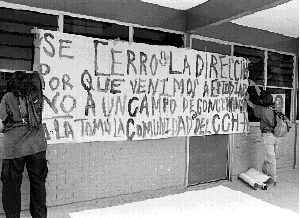 SE CERRO LA DIRECCIO
POR QUE VENIMOS A ESTUDIAR
Y NO A UN CAMPO DE CONCENTRA
LA TOMO LA COMUNIDAD DEL CCH